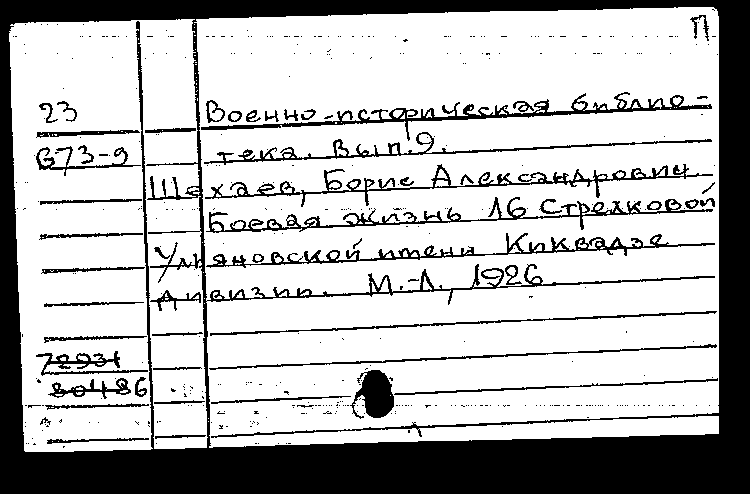 П
23 Военно-историческая библио-
G73-9 тека. Вып. 9.
Шехаев, Борис Александрович
Боевая жизнь 16 Стрелковой
Ульяновской имени Киквадзе
дивизии. М.-Л., 1926.
72931
80486